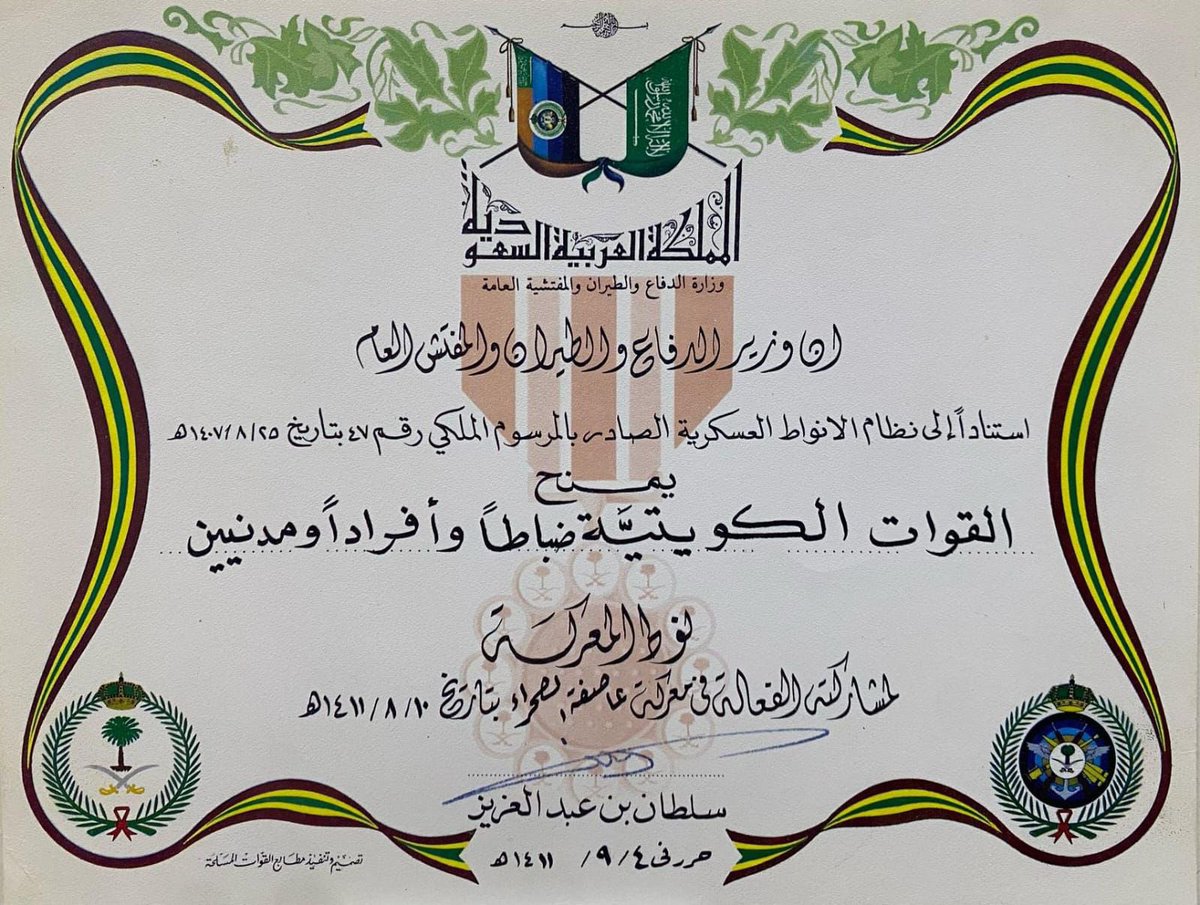 المملكة العربية السعودية
وزارة الدفاع والطيران والمفتشية العامة
ان وزير الدفاع والطيران والمفتش العام
استناداً إلى نظام الانواط العسكرية الصادر بالمرسوم الملكي رقم ٤٧ بتاريخ ١٤٠٧/٨/٢٥هـ
يمنح
القوات الكويتيَّة ضباطاً وأفراداً ومدنيين
نوط المعركة
لمشاركته الفعالة في معركة عاصفة الصحراء بتاريخ ١٤١١/٨/١٠هـ
سلطان بن عبد العزيز
حرر في ٤ / ٩ / ١٤١١هـ
تصميم وتنفيذ مطابع القوات المسلحة